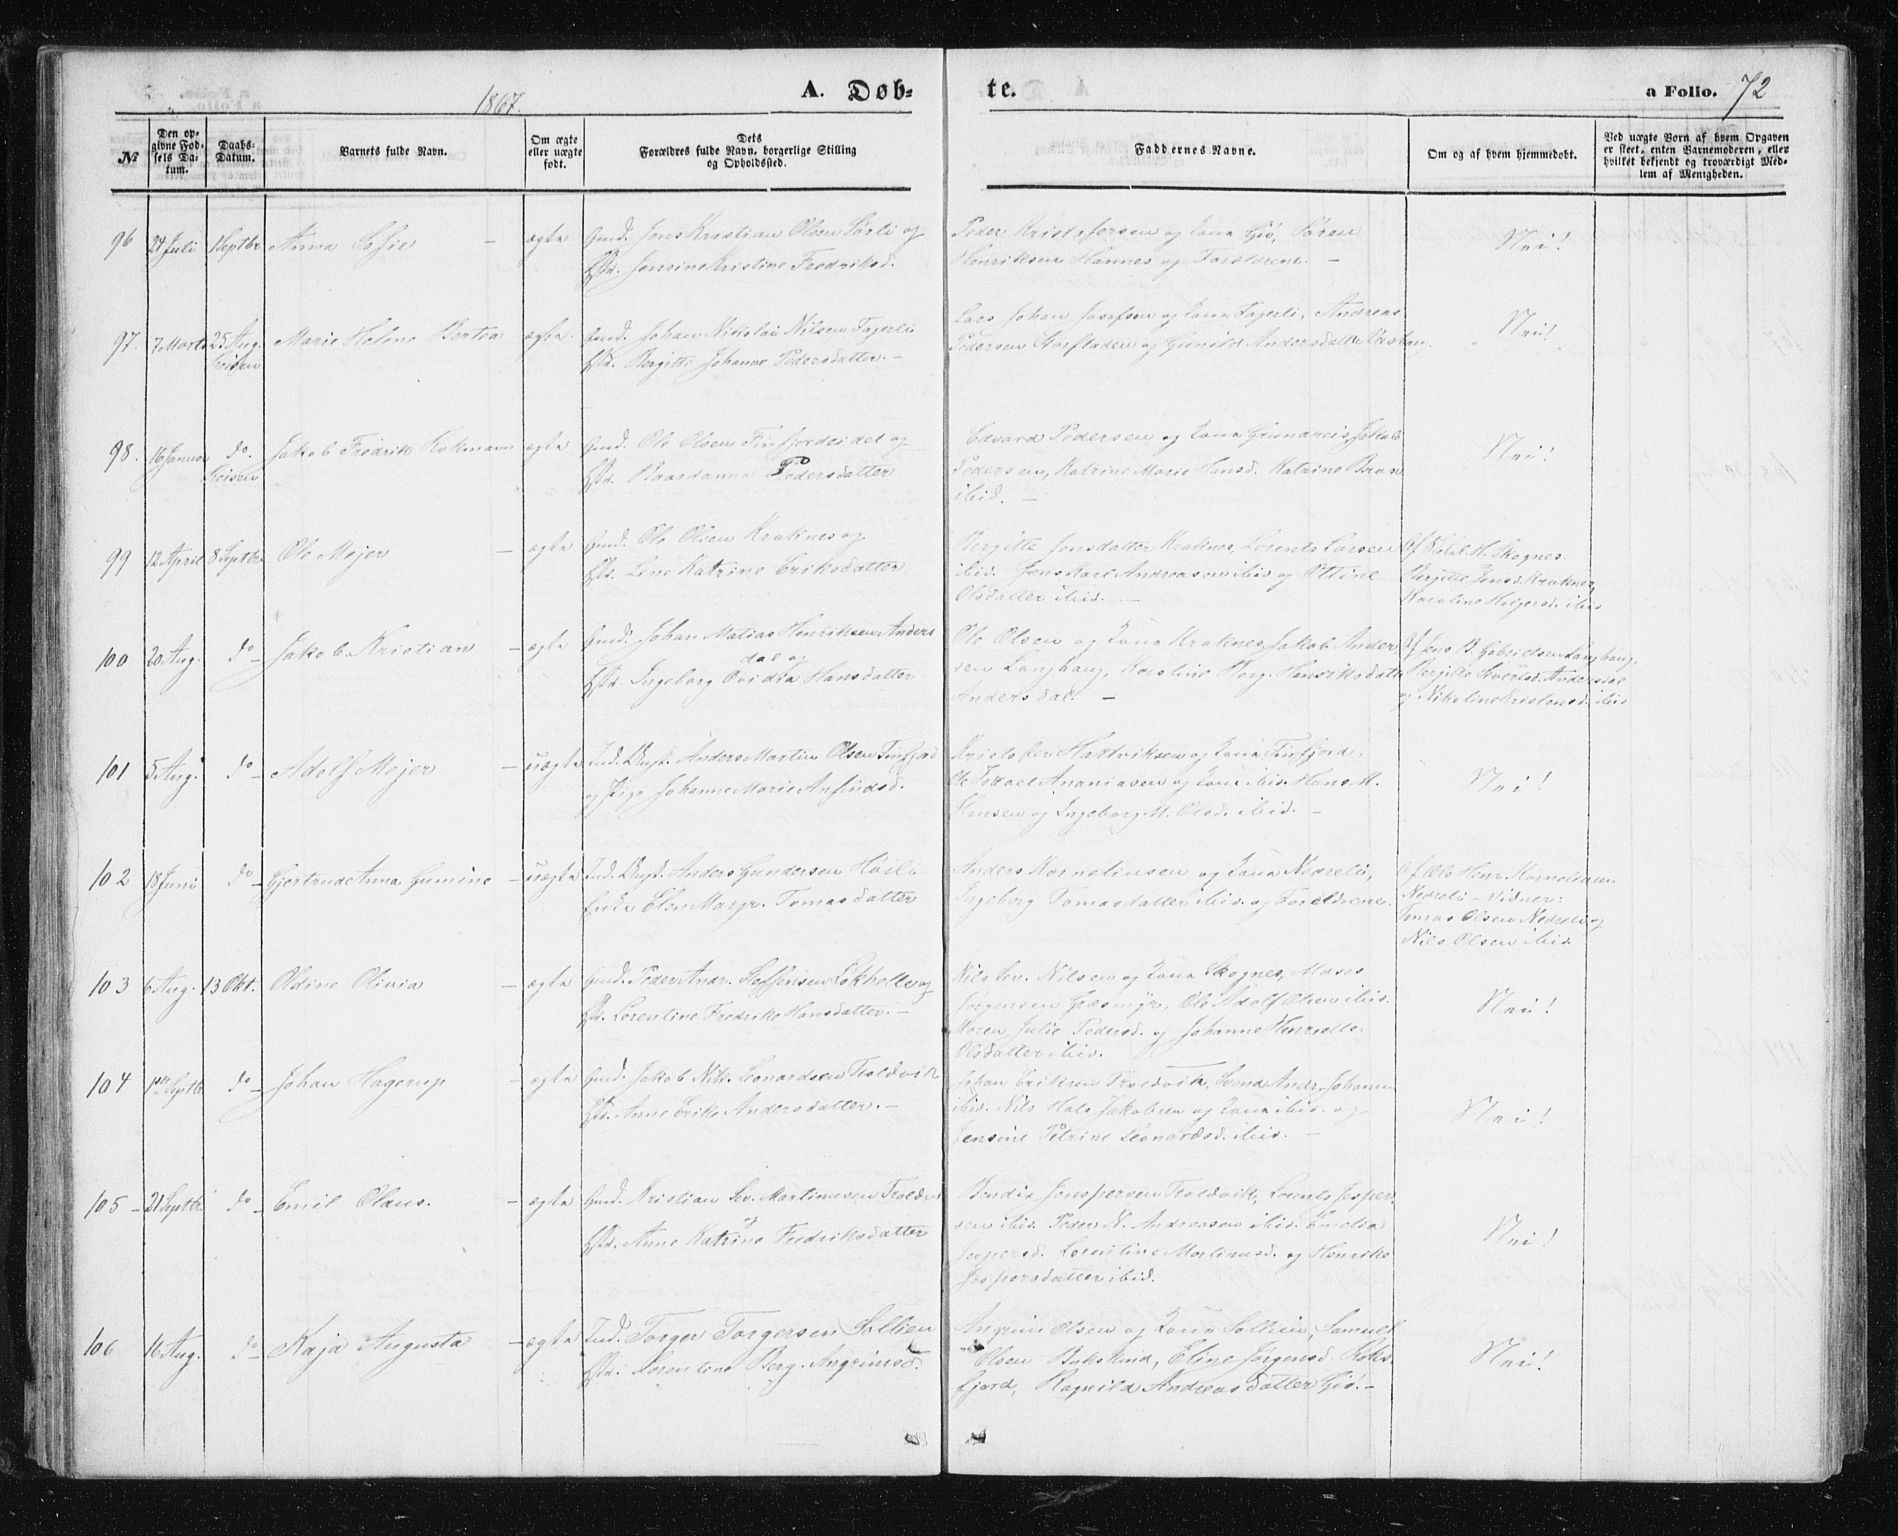 1867.
A. Døb-
te.
a Folio. 72
No
Den op-
givne Fød-
sels Da-
tum.
Daabs-
Datum.
Barnets fulde Navn.
Om ægte
eller uægte
født.
Dets
Forældres fulde Navn, borgerlige Stilling
og Opholdssted.
Faddernes Navne.
Om og af hvem hjemmedøbt.
Ved uægte Børn af hvem Opgaven
er skeet, enten Barnemoderen, eller
hvilket bekjendt og troværdigt Med-
lem af Menigheden.
96 24 Juli 1 Septbr Anna Sofie - ægte Gmd. Jens Kristian Olsen Sørli og
Hst. Jensine Kristine Fredriksd.
Peder Kristofersen og Kone Giø, Søren
Henriksen Hannes og Forældrene. -
Nei!
97. 7 Marts 25 Aug. Marie Helene Bertea ægte. Gmd. Johan Nikolai Nilsen Fagerli
Hst. Bergitte Johanne Pedersdatter. -
Lars Johan Josefsen og Kone Fagerli, Andreas
Pedersen og Gunild Andersdatter
Nei!
98. 16 Januar do. Jakob Fredrik ægte Gmd. Ole Olsen Finfjordeidet og
Hst. Pedersdatter
Edvard Pedersen og Kone Jakob
Pedersen, Katrine Marie Hansd. Katrine
ibid. -
Nei!
99 12 April 8 Septbr Ole Mejer - ægte Gmd. Ole Olsen Kraknes og
Hst. Lene Katrine Eriksdatter
Bergitte Jensdatter Kraknes, Lorents Larsen
ibid. Jens Karl Andreassen ibid og Ottine
Olsdatter ibid. -
Af M. Skognes.
Bergitte Jensd. Kraknes,
Karoline Holgersd. ibid
100 20 Aug. do Jakob Kristian - ægte Gmd. Johan Matias Henriksen Anders
dal og
Hst. Ingeborg Ovidia Hansdatter
Ole Olsen og Kone Kraknes, Jakob Ander
sen Langhaug, Karoline Marg. Henriksdatter
Andersdal. -
Af Jens B. Gabrielsen Langhaug.
Bergitte Andersdal
og Nikoline Kristensd. ibid
101 5 Aug. do Adolf Mejer - uægte Ind. Ungk. Anders Martin Olsen Finfjord
og Pige Johanne Marie Anfindsd.
Kristofer Hartviksen og Kone Finfjord,
Ole Israel Ananiasen og Kone ibid. Hans M.
Hansen og Ingeborg M. Olsd. ibid. -
Nei!
102 18 Juni do Gjertrude Anna Gurine - uægte Ind. Ungk. Anders Gundersen
Enke Elen Margr. Tomasdatter
Anders Korneliusen og Kone Nedreli,
Ingeborg Tomasdatter ibid. og Forældrene.
Af Ole Henr. Korneliusen
Nedreli - Vidner:
Tomas Olsen Nedreli og
Nils Olsen ibid.
103 6 Aug. 13 Okt. Oldine Olivia - ægte Gmd. Peder Andr. Steffensen Løkhelle og
Hst. Lorentine Fredrike Hansdatter. -
Nils Sev. Nilsen og Kone Skognes, Moses
Jørgensen Græsmyr, Ole Adolf Olsen ibid.
Maren Julie Pedersd. og Johanne Henriette
Olsdatter ibid.
Nei!
104 Septbr. do Johan Hagerup - ægte Gmd. Jakob Nik. Leonardsen Troldvik
Hst. Anne Erike Andersdatter. -
Johan Eriksen Troldvik, Svend Andr. Johansen
ibid. Nils Hals Jakobsen og Kone ibid. og
Jensine Petrine Leonardsd. ibid. -
Nei!
105 - 21 Septbr. do Emil Olaus. - ægte Gmd. Kristian Sev. Martinusen Troldvik
Hst. Anne Katrine Fredriksdatter
Bendix Jenspersen Troldvik, Lorents Jesper-
sen ibid. Peder N. Andreasen ibid. Emelia
Jespersd. Lorentine Martinusd. og Henrike
Jespersdatter ibid.
Nei!
106 16 Aug. do Kaja Augusta - ægte Ind. Torger Torgersen Sollien
Hst. Lorentine Berg. Angrimsd.
Angrim Olsen og Kone Sollien, Samuel
Olsen Bukskind, Eline Jørgensd.
fjord, Ragnild Andreasdatter Giø. -
Nei!